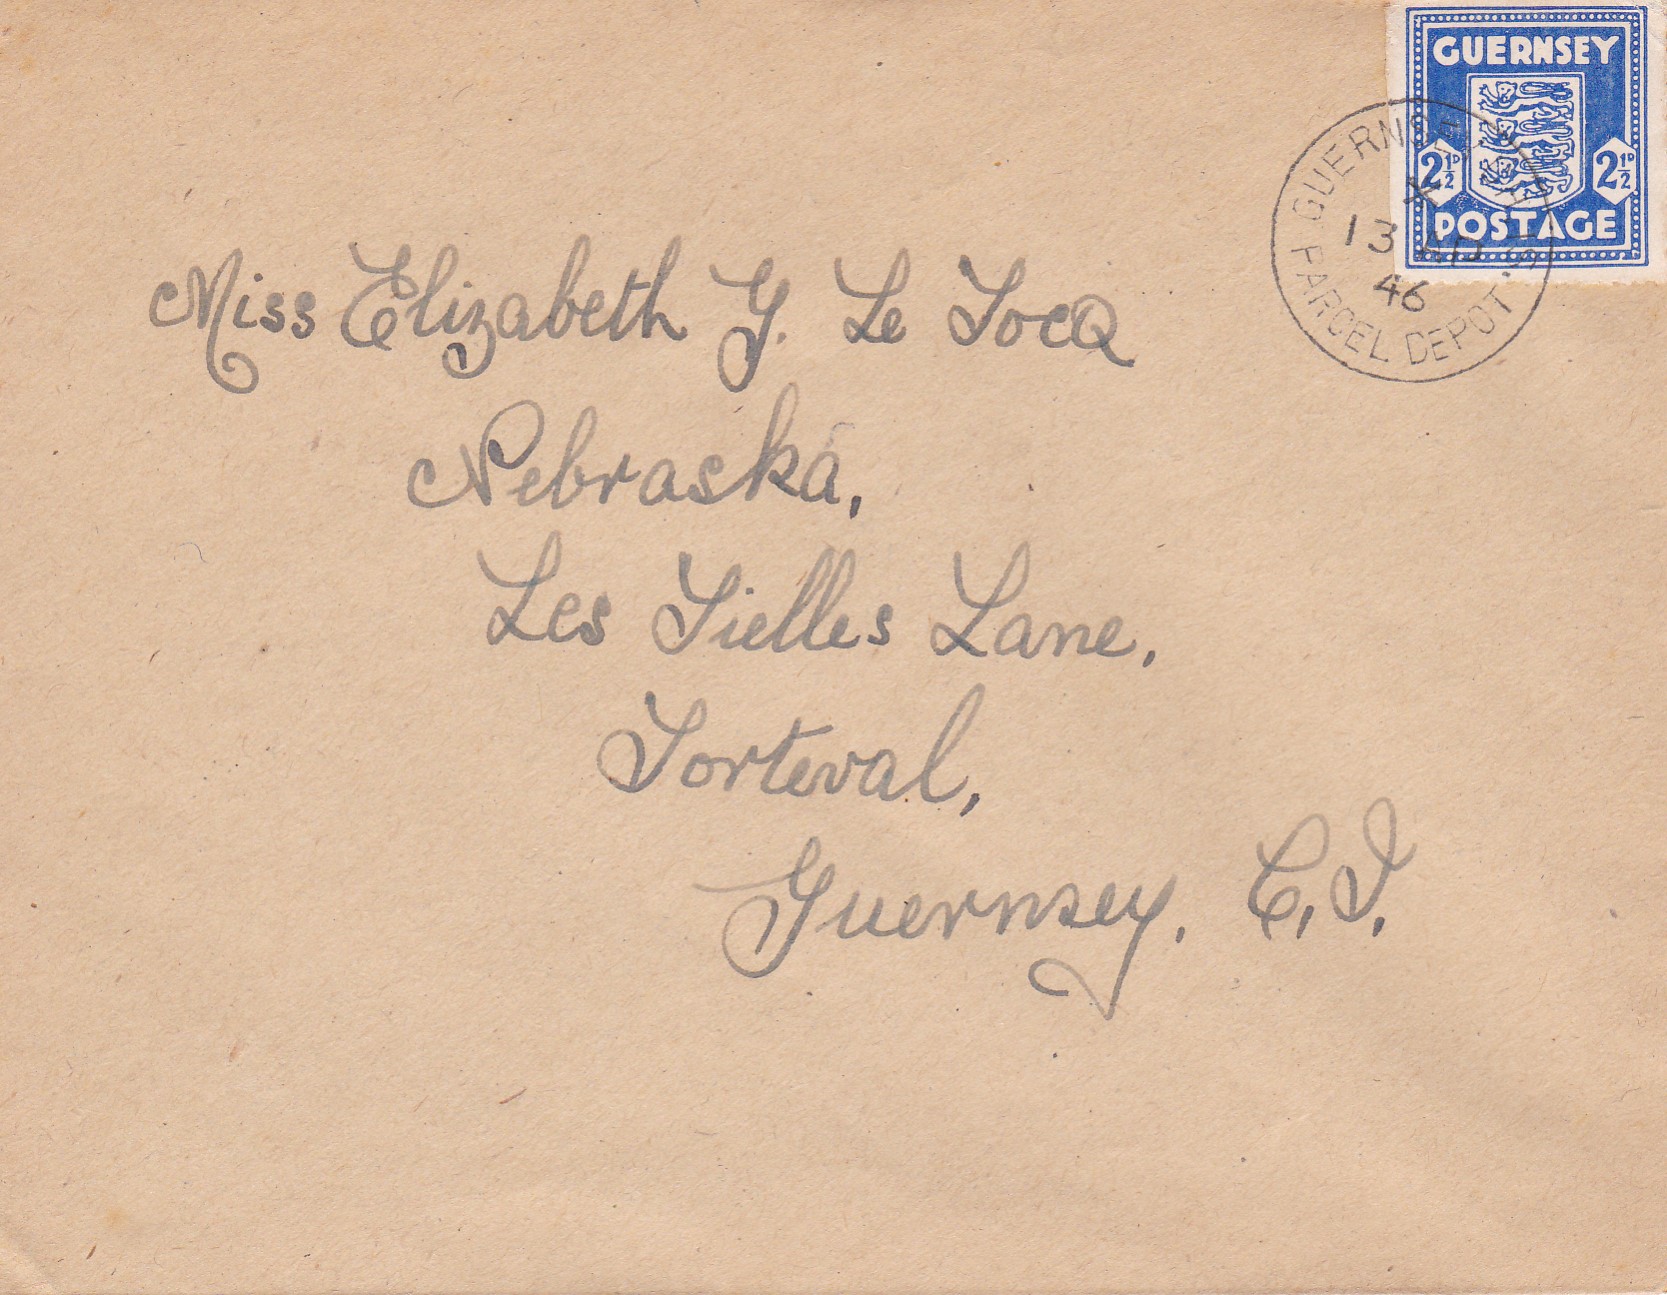 GUERNSEY
2½D 2½D
POSTAGE
GUERNSEY
13 AP
46
PARCEL DEPOT
Miss Elizabeth Y. Le TocQ
Nebraska,
Les Tielles Lane,
Torteval,
Guernsey. C.I.